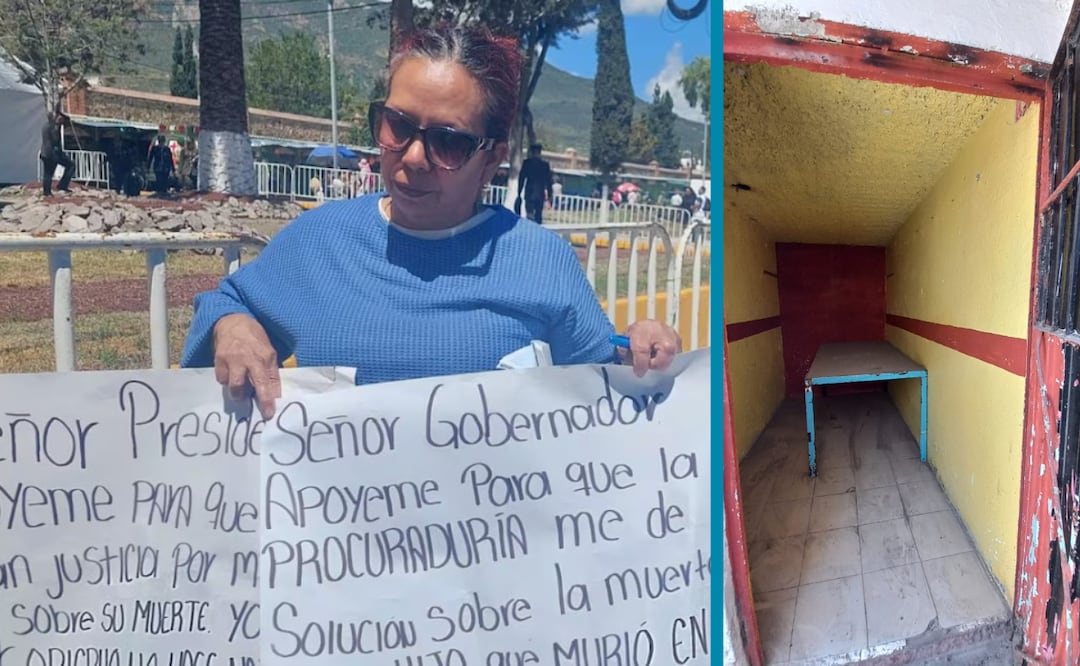 eñor Preside
yeme PARA que
an justicia por m
sobre SU MUERTE. YO
Señor Gobernador
Apoyeme Para que la
PROCURADURÍA me de
Solución sobre la muerte
HIJO que MURIÓ EN